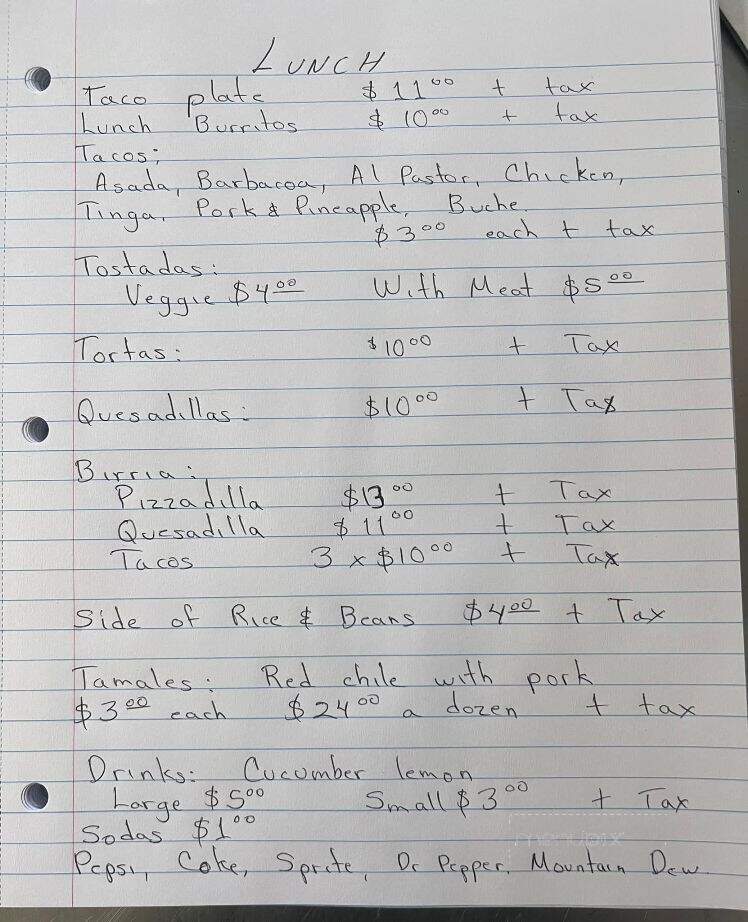 LUNCH
Taco plate $ 11.00 + tax
Lunch Burritos $ 10.00 + tax
Tacos;
Asada, Barbacoa, Al Pastor, Chicken,
Tinga, Pork & Pineapple, Buche
$3.00 each + tax
Tostadas:
Veggie $4.00 With Meat $5.00
Tortas: $10.00 + Tax
Quesadillas: $10.00 + Tax
Birria:
Pizzadilla $13.00 + Tax
Quesadilla $11.00 + Tax
Tacos 3 x $10.00 + Tax
Side of Rice & Beans $4.00 + Tax
Tamales: Red chile with pork
$3.00 each $24.00 a dozen + tax
Drinks: Cucumber lemon
Large $5.00 Small $3.00 + Tax
Sodas $1.00
Pepsi, Coke, Sprite, Dr Pepper, Mountain Dew.
menupix